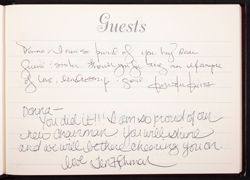 Guests
Donna - I am so proud of you my dear
Thank you for being an example
of love,
Donna-
You did it!!! I am so proud of our
new chairman You will shine
and we will be there cheering you on.
love